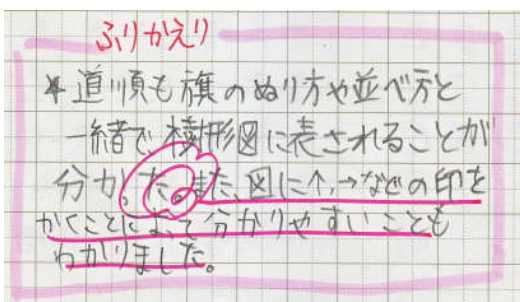 ふりかえり
*道順も旗のぬり方や並べ方と
一緒で、樹形図に表されることが
分かった。また、図に↑、→などの印を
かくことによって分かりやすいことも
わかりました。